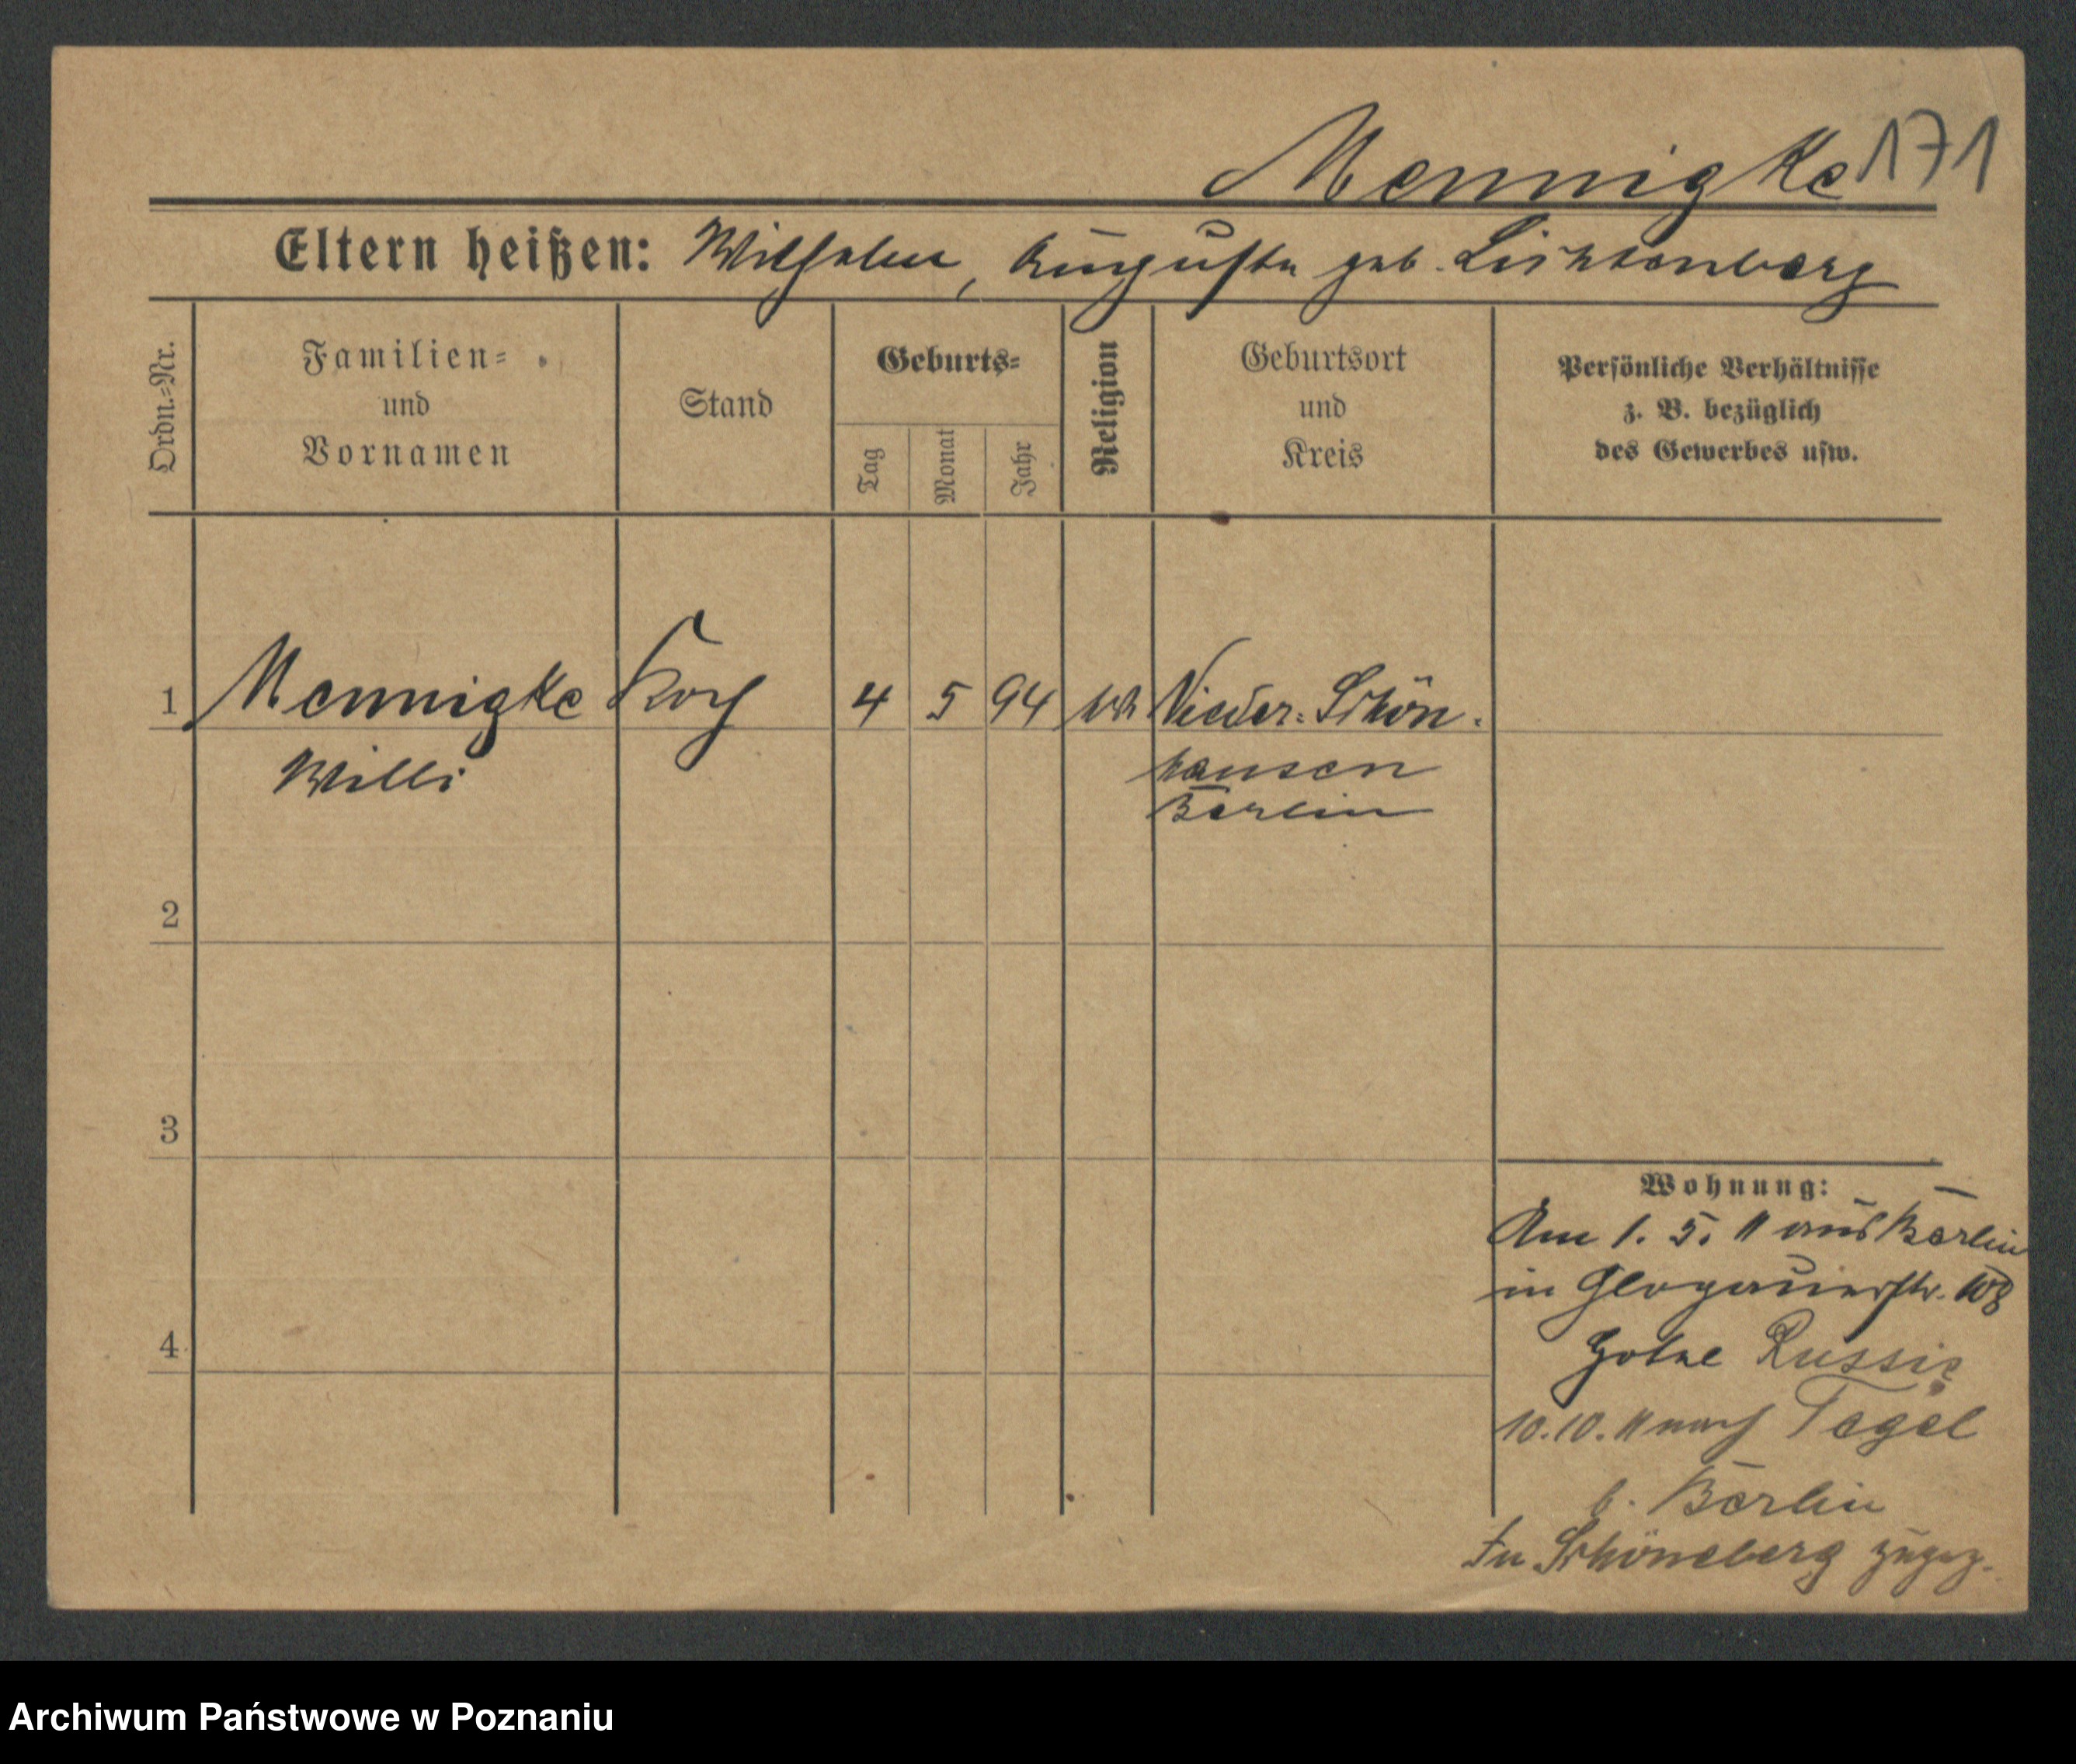 Mennigke 171
Eltern heißen: Wilhelm, Auguste geb. Lichtenberg
Ordn.-Nr.
Familien-
und
Vornamen
Stand
Geburts-
Tag
Monat
Jahr
Religion
Geburtsort
und
Kreis
Persönliche Verhältnisse
z. B. bezüglich
des Gewerbes usw.
1 Mennigke Koch 4 5 94 Nieder-Schön-
Willi hausen
Berlin
2
3
4
Wohnung:
Am 1. 5. 11 aus Berlin
in Glogauerstr. 108
Hotel Russie
10.10.11 nach Tegel
b. Berlin
In Schöneberg zugez.
Archiwum Państwowe w Poznaniu